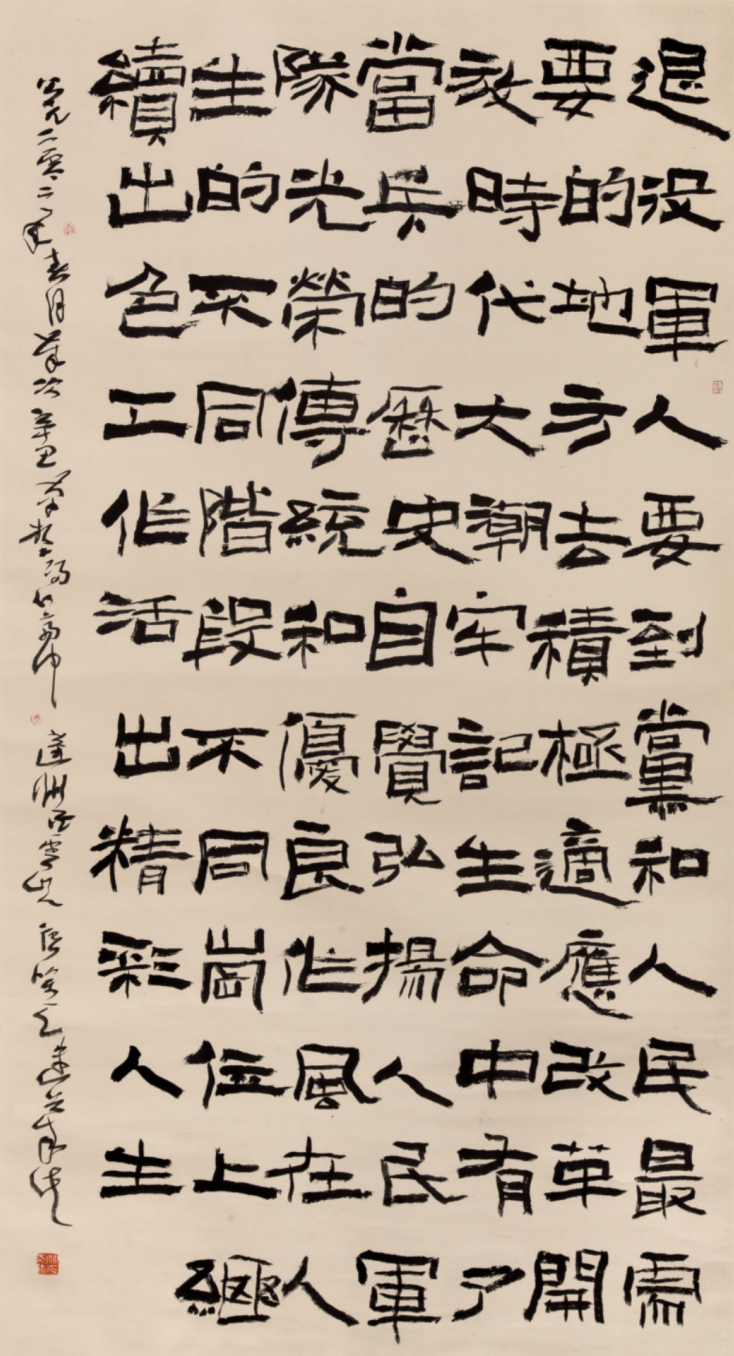 退役軍人要到黨和人民最需
要的地方去積極適應改革開
放時代大潮牢記生命中有了
當兵的歷史自覺弘揚人民軍
隊光榮傳統和優良作風在人
生的不同階段不同崗位上繼
續出色工作活出精彩人生
公元二零二一年春月歲次辛丑